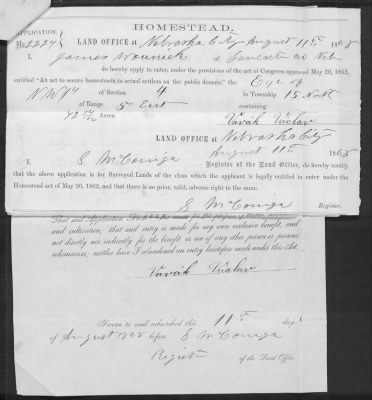 HOMESTEAD.
APPLICATION,
No. 2224
LAND OFFICE at Nebraska City August 11th 1868
I, James of Lancaster Co Neb
do hereby apply to enter, under the provisions of the act of Congress approved May 20, 1862,
entitled "An act to secure homesteads to actual settlers on the public domain," the E½ of
NW¼ of Section 4 in Township 15 North
of Range 5 East containing
72 Acres
Vavák Václav
LAND OFFICE at Nebraska City
August 11th 1868
I, S McConiga Register of the Land Office, do hereby certify
that the above application is for Surveyed Lands of the class which the applicant is legally entitled to enter under the
Homestead act of May 20, 1862, and that there is no prior, valid, adverse right to the same.
S McConiga
Register.
That said Application is made for the purpose of actual settlement
and cultivation; that said entry is made for my own exclusive benefit, and
not directly nor indirectly for the benefit or use of any other person or persons
whomsoever; neither have I abandoned an entry heretofore made under this Act.
Vavák Václav
Sworn to and subscribed this 11th day
of August 1868 before S McConiga
Register
of the Land Office.